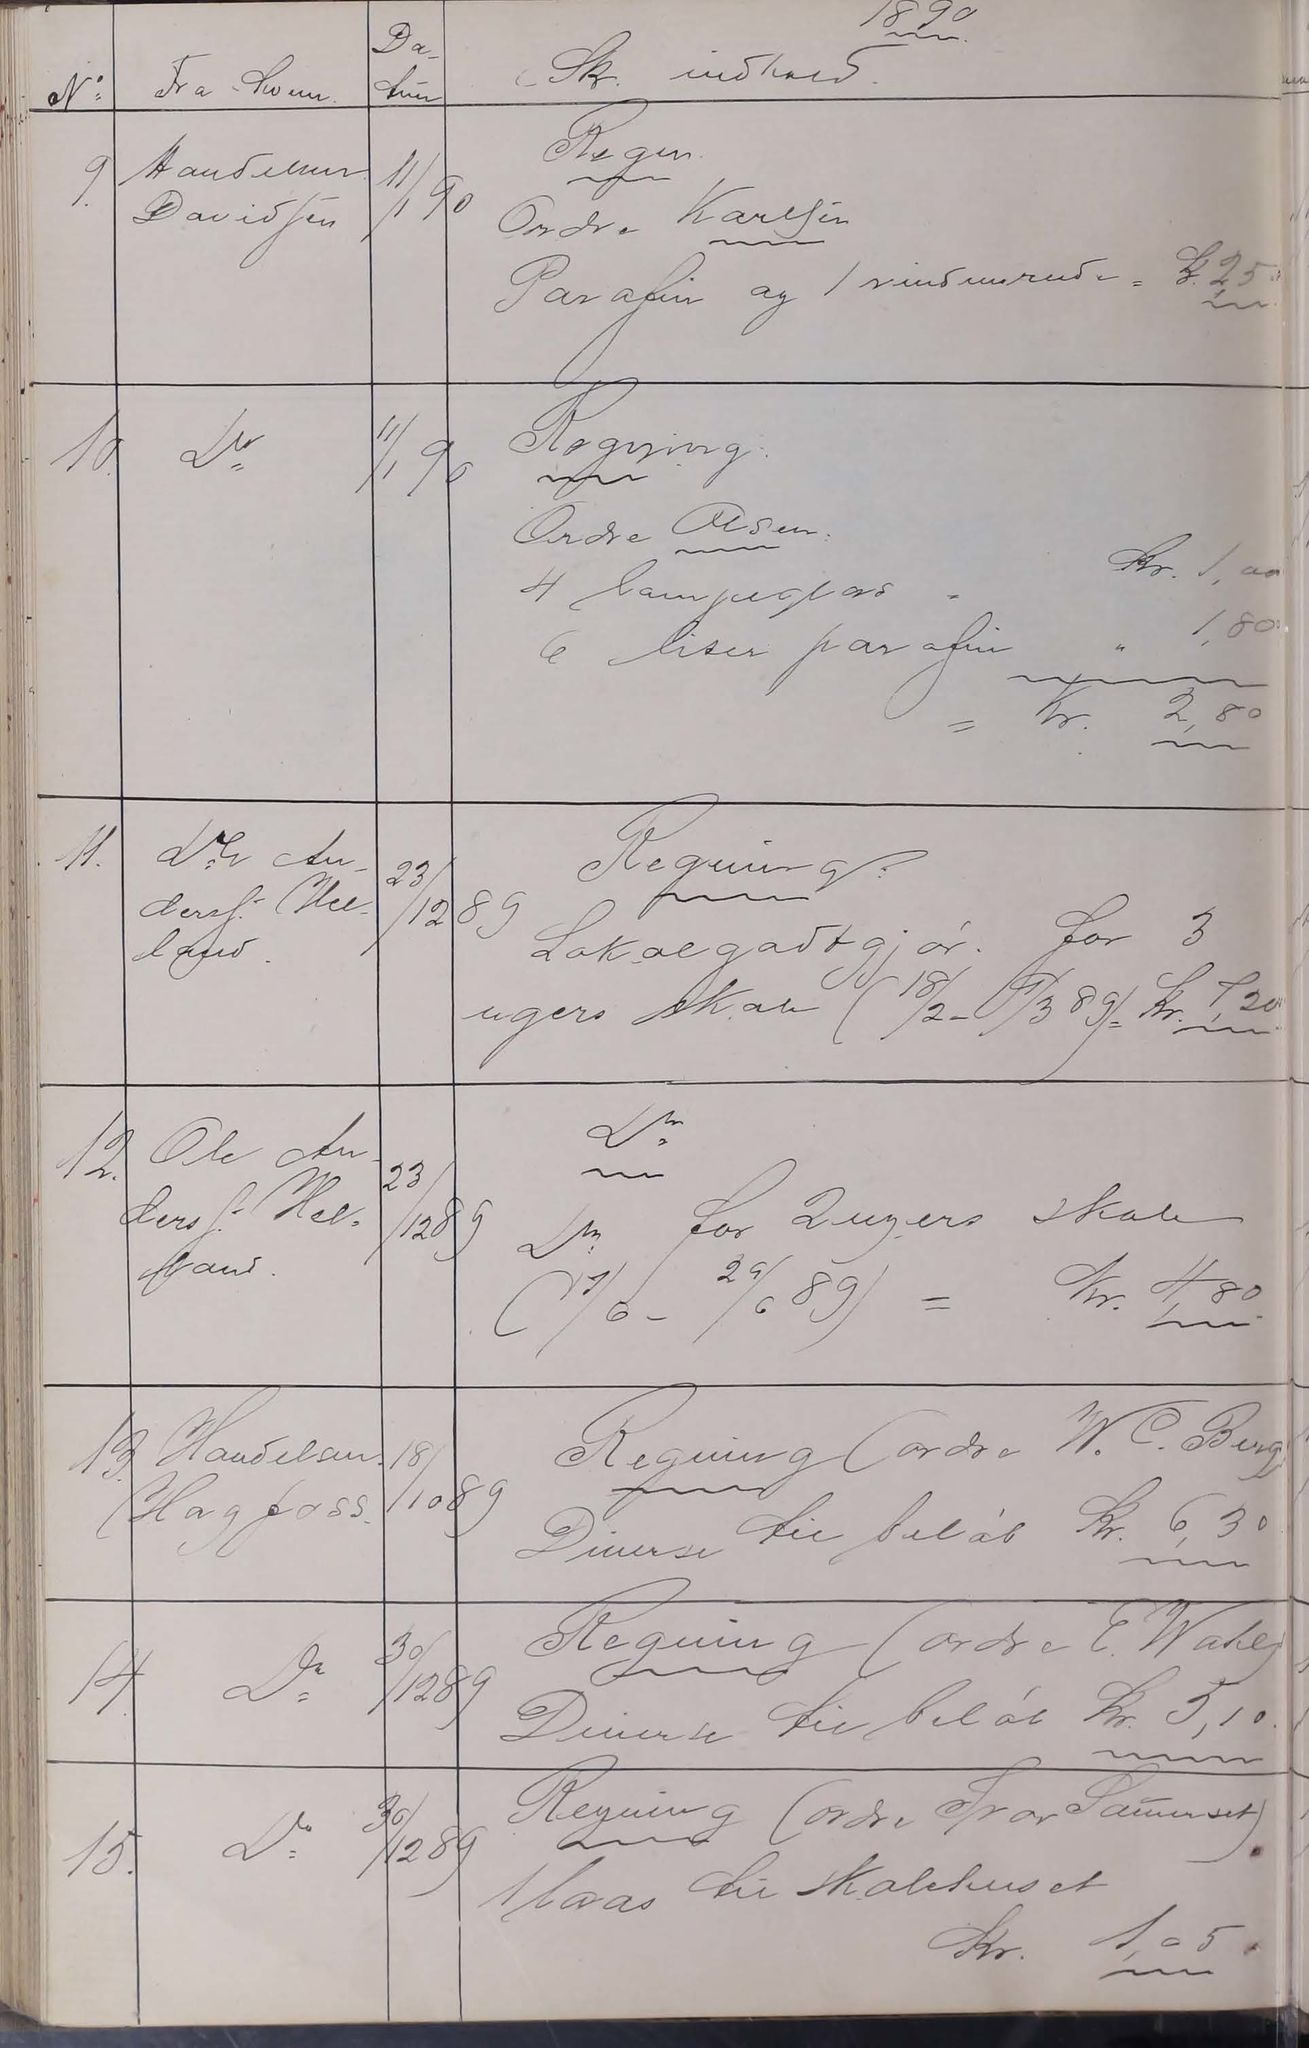 1890
No. Fra hvem. Da-
tum Skr. indhold.
9. Handelsm. 11/1 90 Regn.
Davidsen Ordre Karlsen
Parafin og 1 vindusrude = kr. 2,50
10. Do 11/1 90 Regning.
Ordre Olsen.
4 lampeglas " kr. 1,00
6 liter parafin " 1,80
= Kr. 2,80
11. An- 23/12 89 Regning.
ders. Hel-
land. Lokalegodtgjør. for 3
ugers skole (18/2 - 9/3 89) = kr. 7,20
12. Ole An- 23/12 89 Do
ders. Hel-
land. Do for 2 ugers skole
(17/6 - 29/6 89) = kr. 4,80
13. Handelsm. 18/10 89 Regning (ordre W. C. Berg)
Hagfoss. Diverse til beløb kr. 6,30
14. Do 30/12 89 Regning (ordre E. Wahl)
Diverse til beløb kr. 5,10.
15. Do 30/12 89 Regning (ordre Ivar Sameset)
1 laas til skolehuset
kr. 1,05.